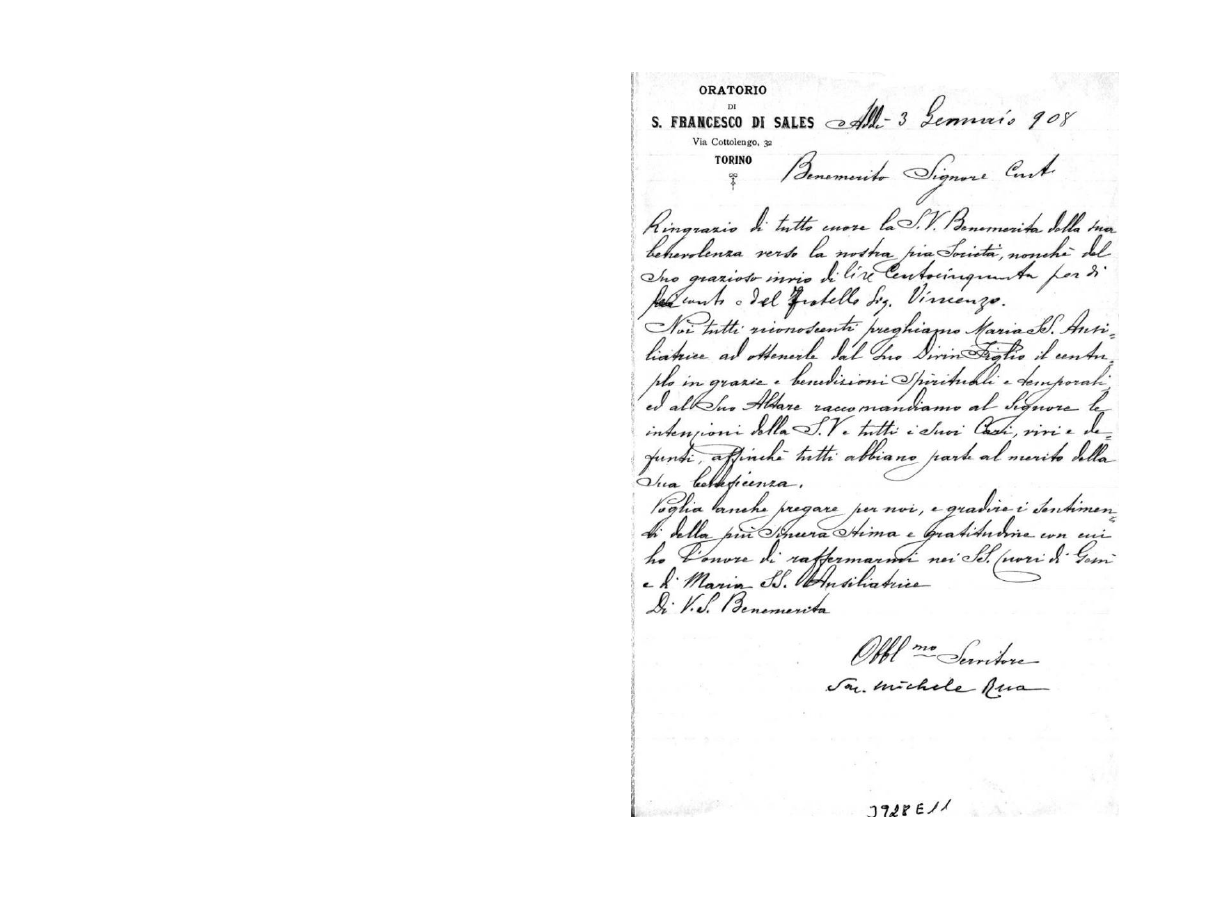 ORATORIO
DI
S. FRANCESCO DI SALES
Via Cottolengo, 32
TORINO
Addì 3 Gennaio 908
Benemerito Signore
Ringrazio di tutto cuore la S.V. Benemerita della sua
benevolenza verso la nostra pia Società, nonchè del
Suo grazioso invio di lire Centocinquanta per di
conto e del fratello Sig. Vincenzo.
Noi tutti riconoscenti preghiamo Maria SS. Ausi=
liatrice ad ottenerle dal Suo Divin Figlio il centu=
plo in grazie e benedizioni Spirituali e temporali,
ed all Suo Altare raccomandiamo al Signore le
intenzioni della S.V e tutti i Suoi Cari, vivi e de=
funti, affinchè tutti abbiano parte al merito della
Sua beneficenza.
Voglia anche pregare per noi, e gradire i Sentimen=
ti della più Sincera Stima e gratitudine con cui
ho l'onore di raffermarmi nei SS. Cuori di Gesù
e di Maria SS. Ausiliatrice
Di V.S. Benemerita
Obbl mo Servitore
Sac. Michele Rua
3928 E 11